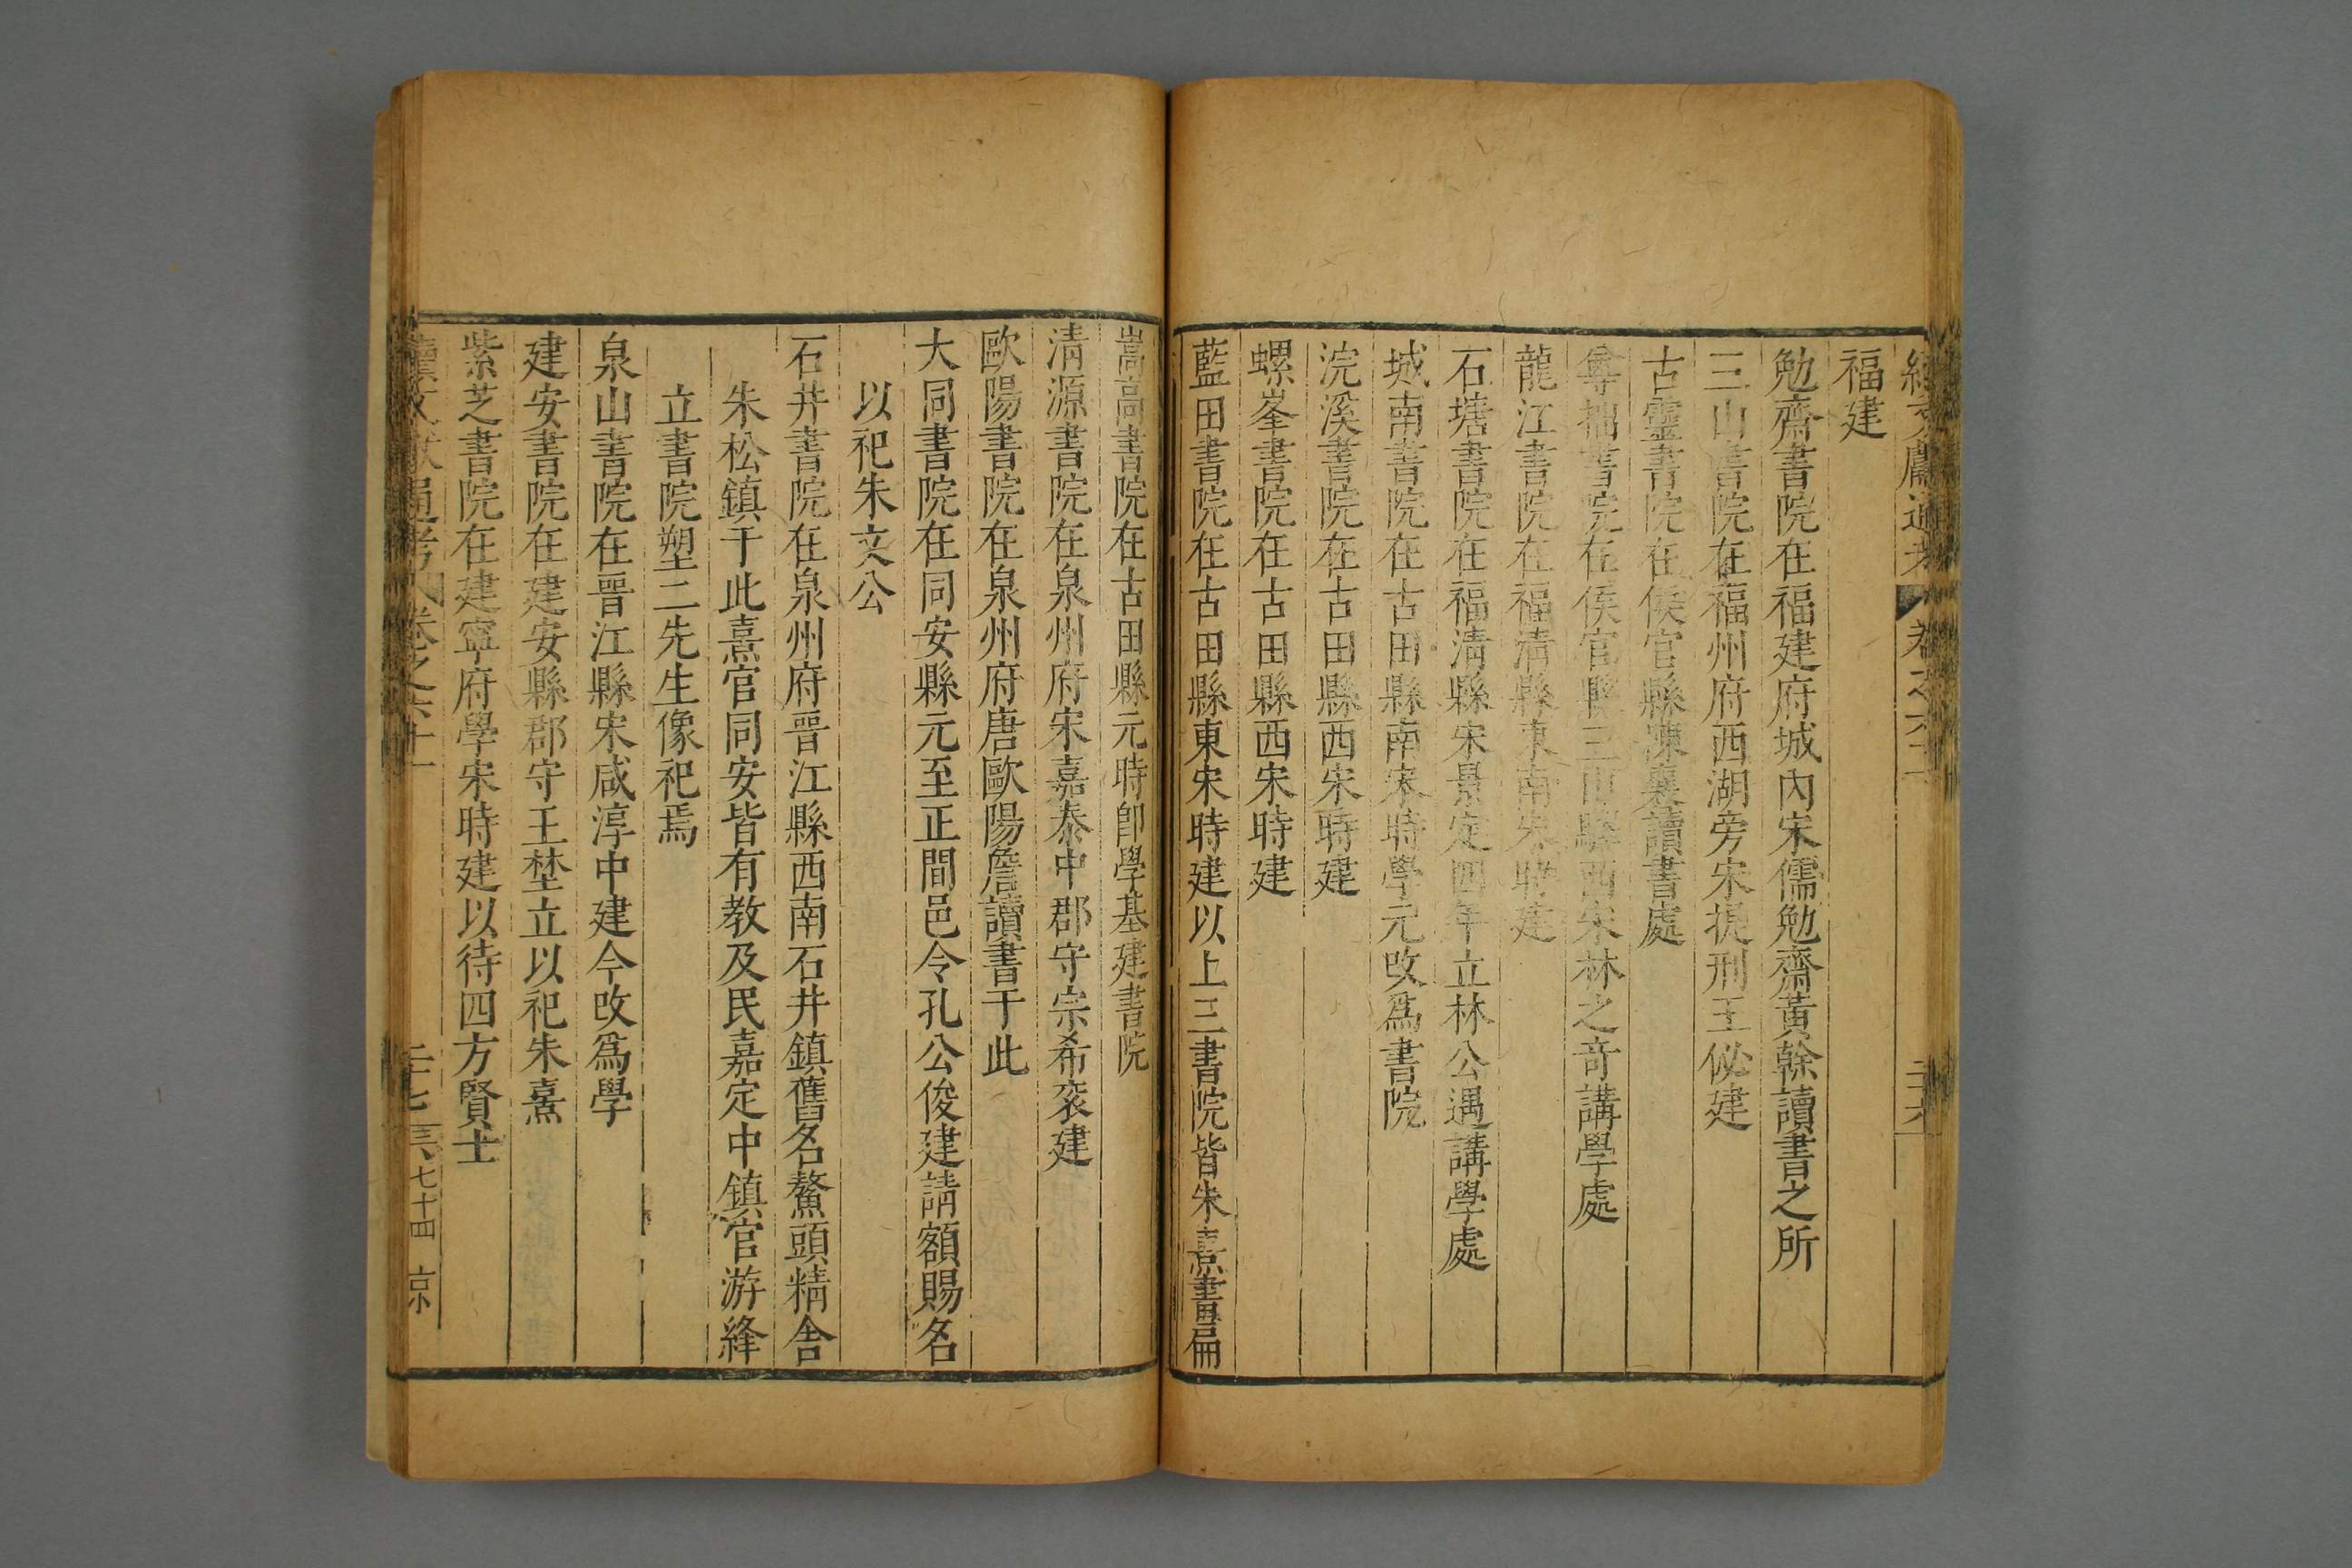 續文獻通考 卷之六十一 二十六
福建
勉齋書院在福建府城內宋儒勉齋黃榦讀書之所
三山書院在福州府西湖旁宋提刑王佖建
古靈書院在侯官縣陳襄讀書處
拙書院在侯官縣三山驛西宋林之竒講學處
龍江書院在福清縣東南宋時建
石塘書院在福清縣宋景定四年立林公遇講學處
城南書院在古田縣南宋時學元改爲書院
浣溪書院在古田縣西宋時建
螺峯書院在古田縣西宋時建
藍田書院在古田縣東宋時建以上三書院皆朱熹書扁
嵩高書院在古田縣元時卽學基建書院
清源書院在泉州府宋嘉泰中郡守宗希衮建
歐陽書院在泉州府唐歐陽詹讀書于此
大同書院在同安縣元至正間邑令孔公俊建請額賜名
以祀朱文公
石井書院在泉州府晉江縣西南石井鎮舊名鰲頭精舍
朱松鎮于此熹官同安皆有教及民嘉定中鎮官游絳
立書院塑二先生像祀焉
泉山書院在晉江縣宋咸淳中建今改爲學
建安書院在建安縣郡守王埜立以祀朱熹
紫芝書院在建寧府學宋時建以待四方賢士
續文獻通考 卷之六十一 二十七 三 七十四 京